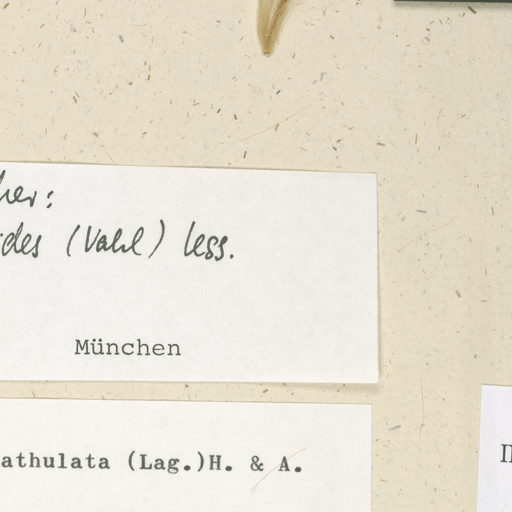 her:
ides (Vahl) Less.
München
athulata (Lag.)H. & A.